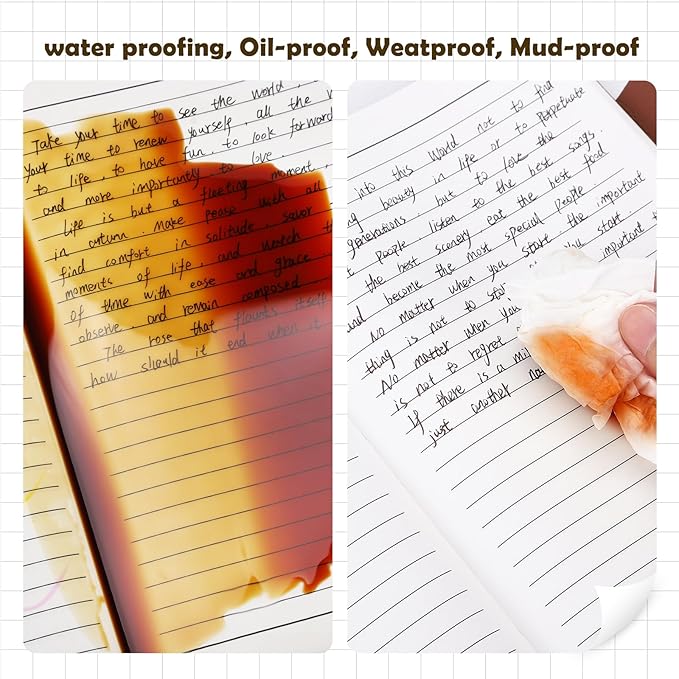 water proofing, Oil-proof, Weatproof, Mud-proof
Take your time to see the world,
your time to renew yourself, all the
to life, to have fun, to look forward
and more importantly to love
Life is but a fleeting moment,
in autumn. Make peace with all
find comfort in solitude, savor
moments of life, and watch th
of time with ease and grace
observe, and remain composed
The rose that flaunts itself
how should it end when it
into this World not to find
beauty in life or to Perpetuate
generations, but to love the
People listen to the best songs,
the best scenery eat the best food
and become the most special People.
No matter when you start the important
thing is not to sto you start
No matter when you important
is not to regret
If there is a mi
just another